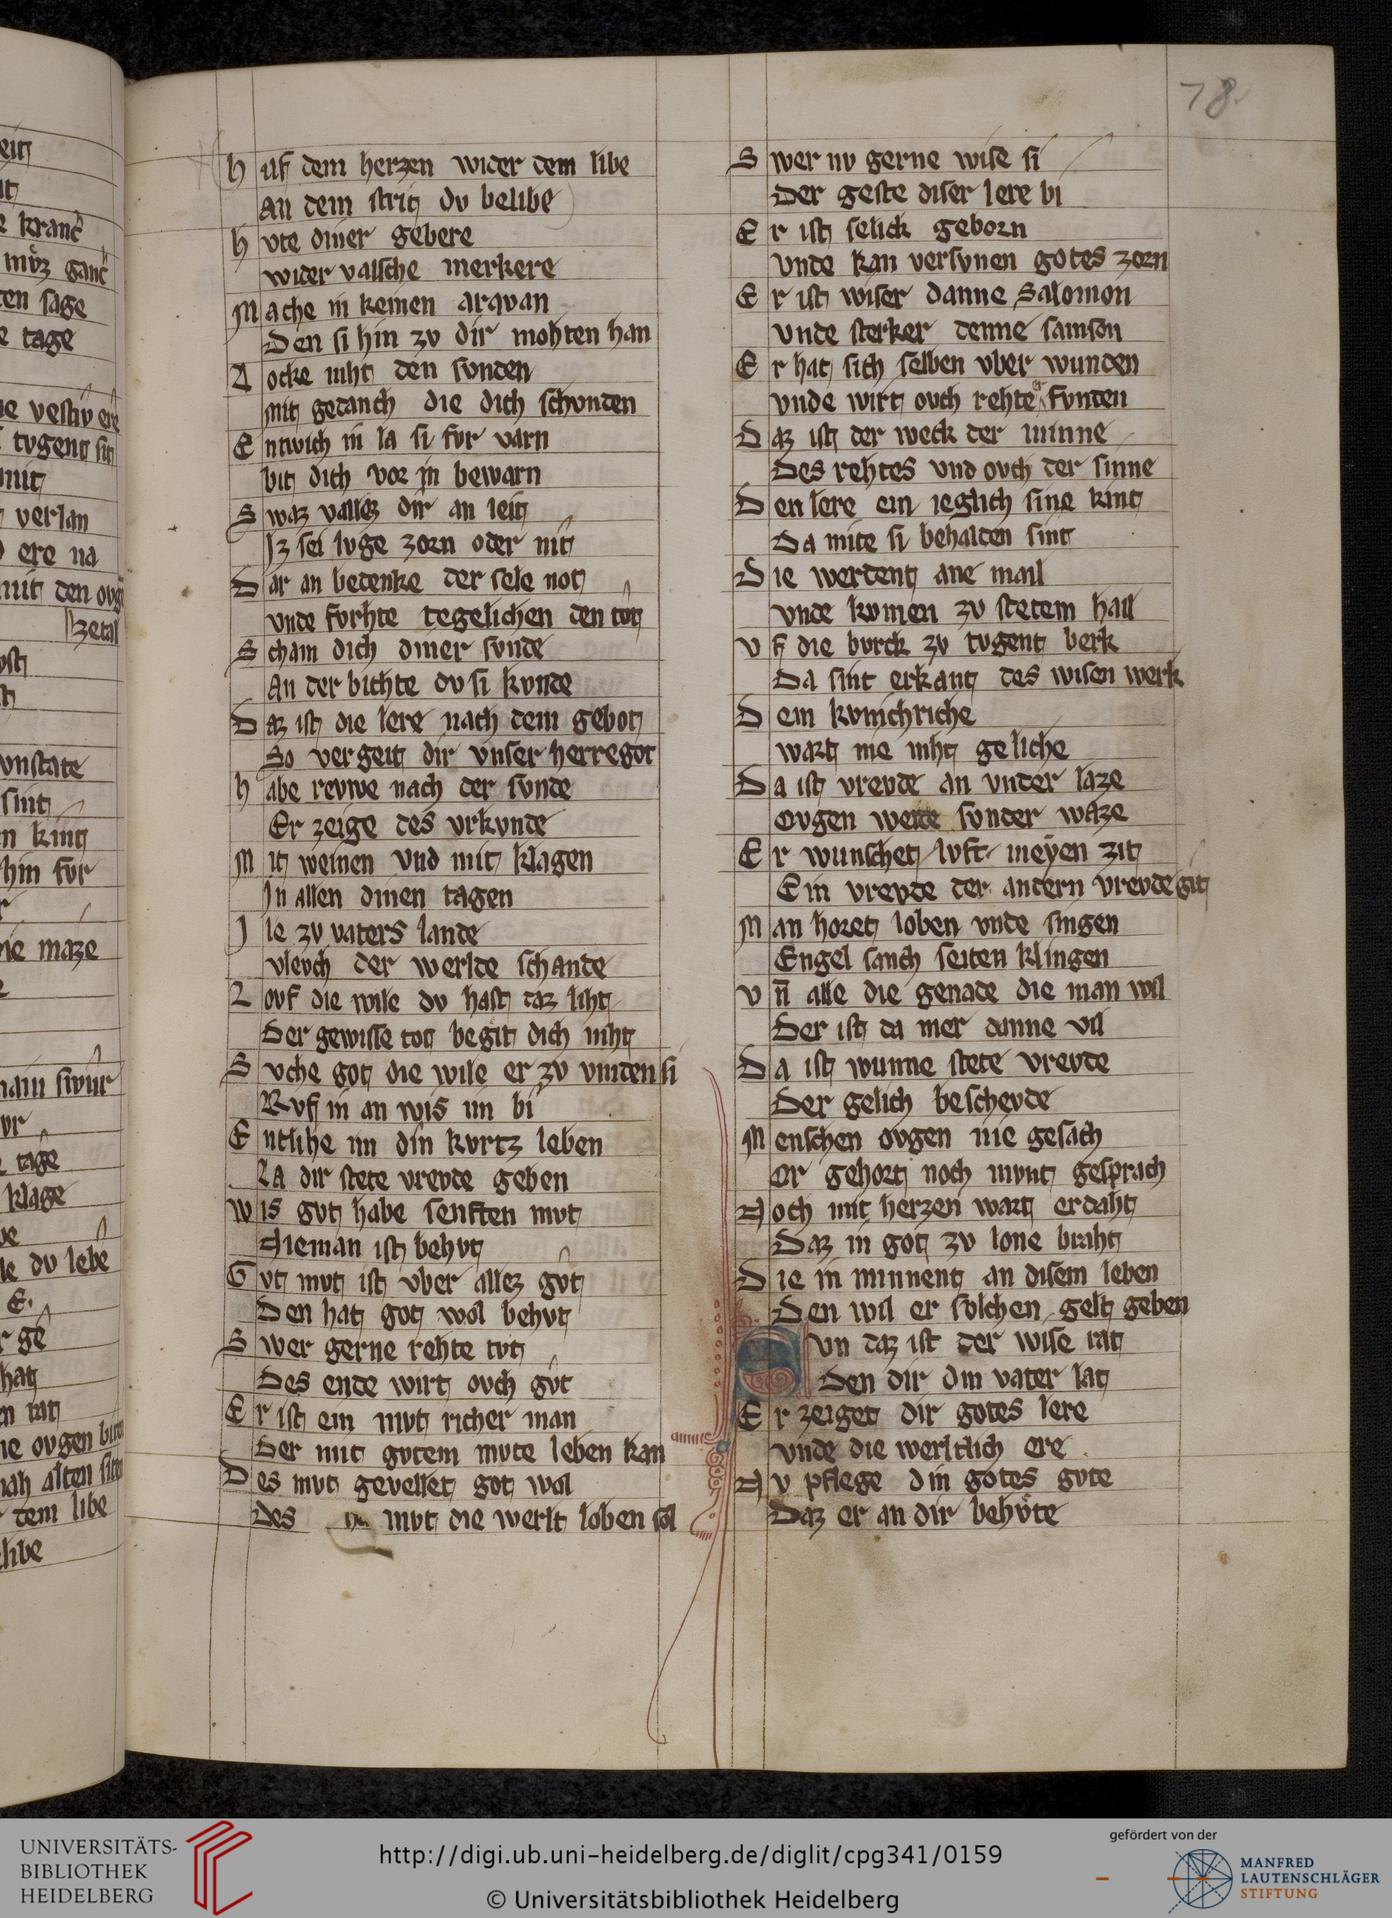 78
Huf dem herzen wider dem libe
An dem strit du belibe
Hvte diner gebere
wider valsche merkere
Mache in keinen arqvan
Den si hin zv dir mohten han
Locke niht den svnden
mit gedanch die dich schvnden
Entwich in la si fvr varn
bit dich vor in bewarn
Swaz vallez dir an leit
Jz sei lvge zorn oder nit
Dar an bedenke der sele not
vnde fvrhte tegelichen den tot
Scham dich diner svnde
An der bichte dv si kvnde
Daz ist die lere nach dem gebot
So vergeit dir vnser herregot
Habe revwe nach der svnde
Er zeige des vrkvnde
Mit weinen vnd mit klagen
Jn allen dinen tagen
Jle zv vaters lande
vlevch der werlde schande
Lovf die wile dv hast daz liht
Der gewisse tot begit dich niht
Svche got die wile er zv vinden si
Rvf in an wis im bi
Entlihe im din kvrtz leben
La dir stete vrevde geben
wis gvt habe senften mvt
Nieman ist behvt
Gvt mvt ist vber allez gvt
Den hat got wol behvt
Swer gerne rehte tvt
Des ende wirt ovch gvt
Er ist ein mvt richer man
Der mit gvtem mvte leben kan
Des mvt gevellet got wol
Des mvt die werlt loben sol
Swer nv gerne wise si
Der geste diser lere bi
Er ist selick geborn
vnde kan versvnen gotes zorn
Er ist wiser danne Salomon
vnde sterker denne samson
Er hat sich selben vber wunden
vnde wirt ovch rehte er fvnden
Daz ist der weck der minne
Des rehtes vnd ovch der sinne
Den lere ein ieglich sine kint
Da mite si behalden sint
Die werdent ane mail
vnde kvmen zv stetem hail
vf die bvrck zv tvgent berk
Da sint erkant des wisen werk
Dem kvnichriche
wart nie niht geliche
Da ist vrevde an vnder laze
Ovgen weide svnder waze
Er wunschet lvft meyen zit
Ein vrevde der andern vrevde git
Man horet loben vnde singen
Engel sanch seiten klingen
vn̄ alle die genade die man wil
Der ist da mer danne vil
Da ist wunne stete vrevde
Der gelich beschevde
Menschen ovgen nie gesach
Or gehort noch mvnt gesprach
Noch mit herzen wart erdaht
Daz in got zv lone braht
Die in minnent an disem leben
Den wil er solchen gelt geben
Svn daz ist der wise rat
Den dir din vater lat
Er zeiget dir gotes lere
vnde die werltlich ere
Nv pflege din gotes gvte
Daz er an dir behvte
UNIVERSITÄTS-
BIBLIOTHEK
HEIDELBERG
http://digi.ub.uni-heidelberg.de/diglit/cpg341/0159
© Universitätsbibliothek Heidelberg
gefördert von der
MANFRED
LAUTENSCHLÄGER
STIFTUNG